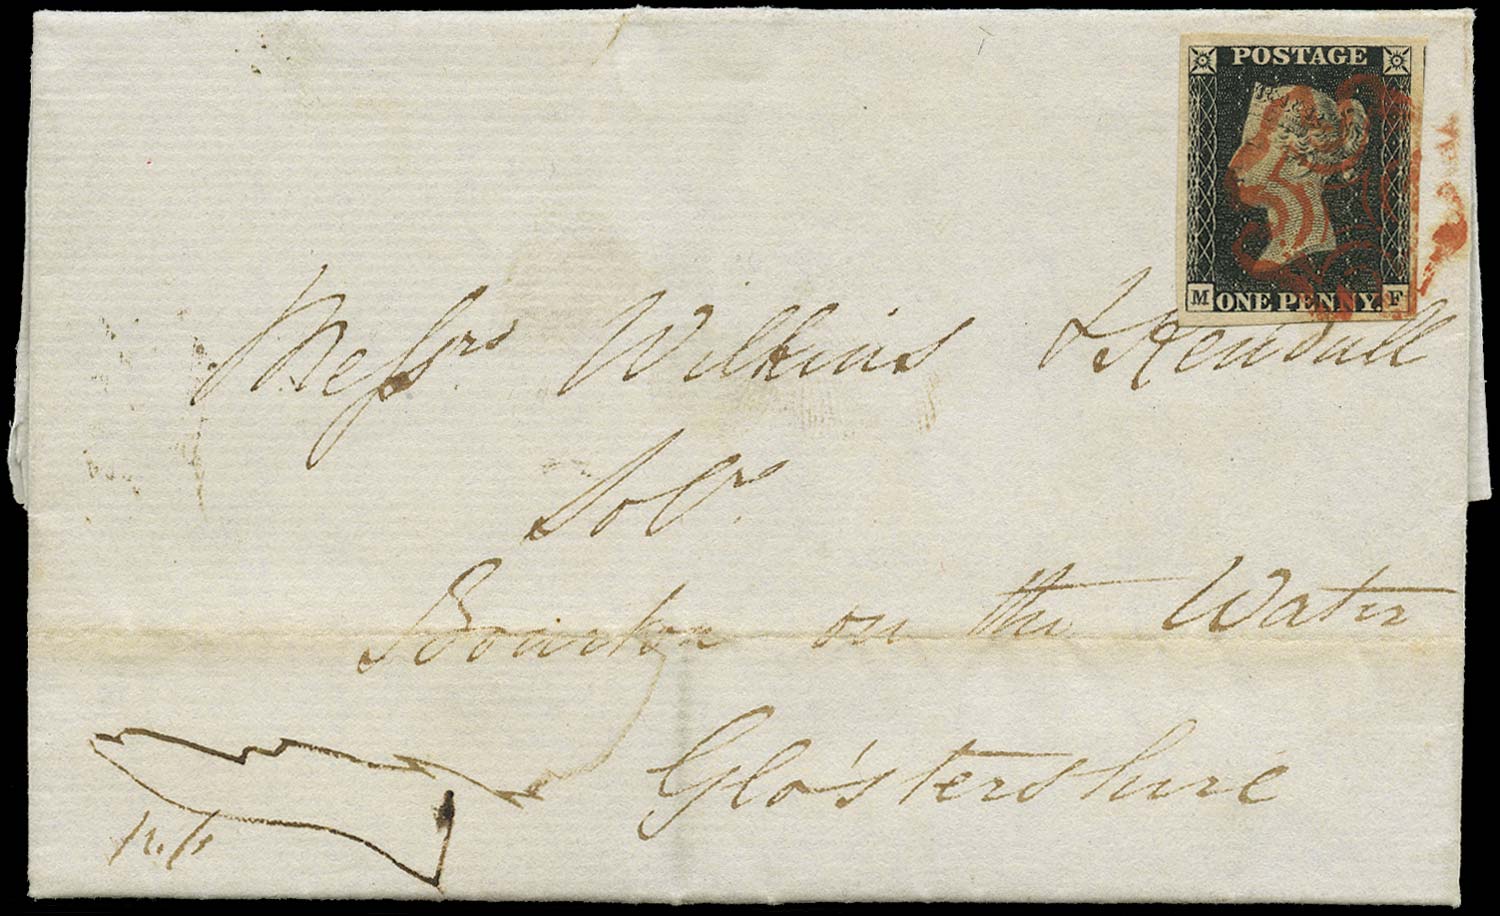 POSTAGE
M ONE PENNY. F
Messrs Wilkins & Kendall
Solrs
Bourton on the Water
Glo'stershire